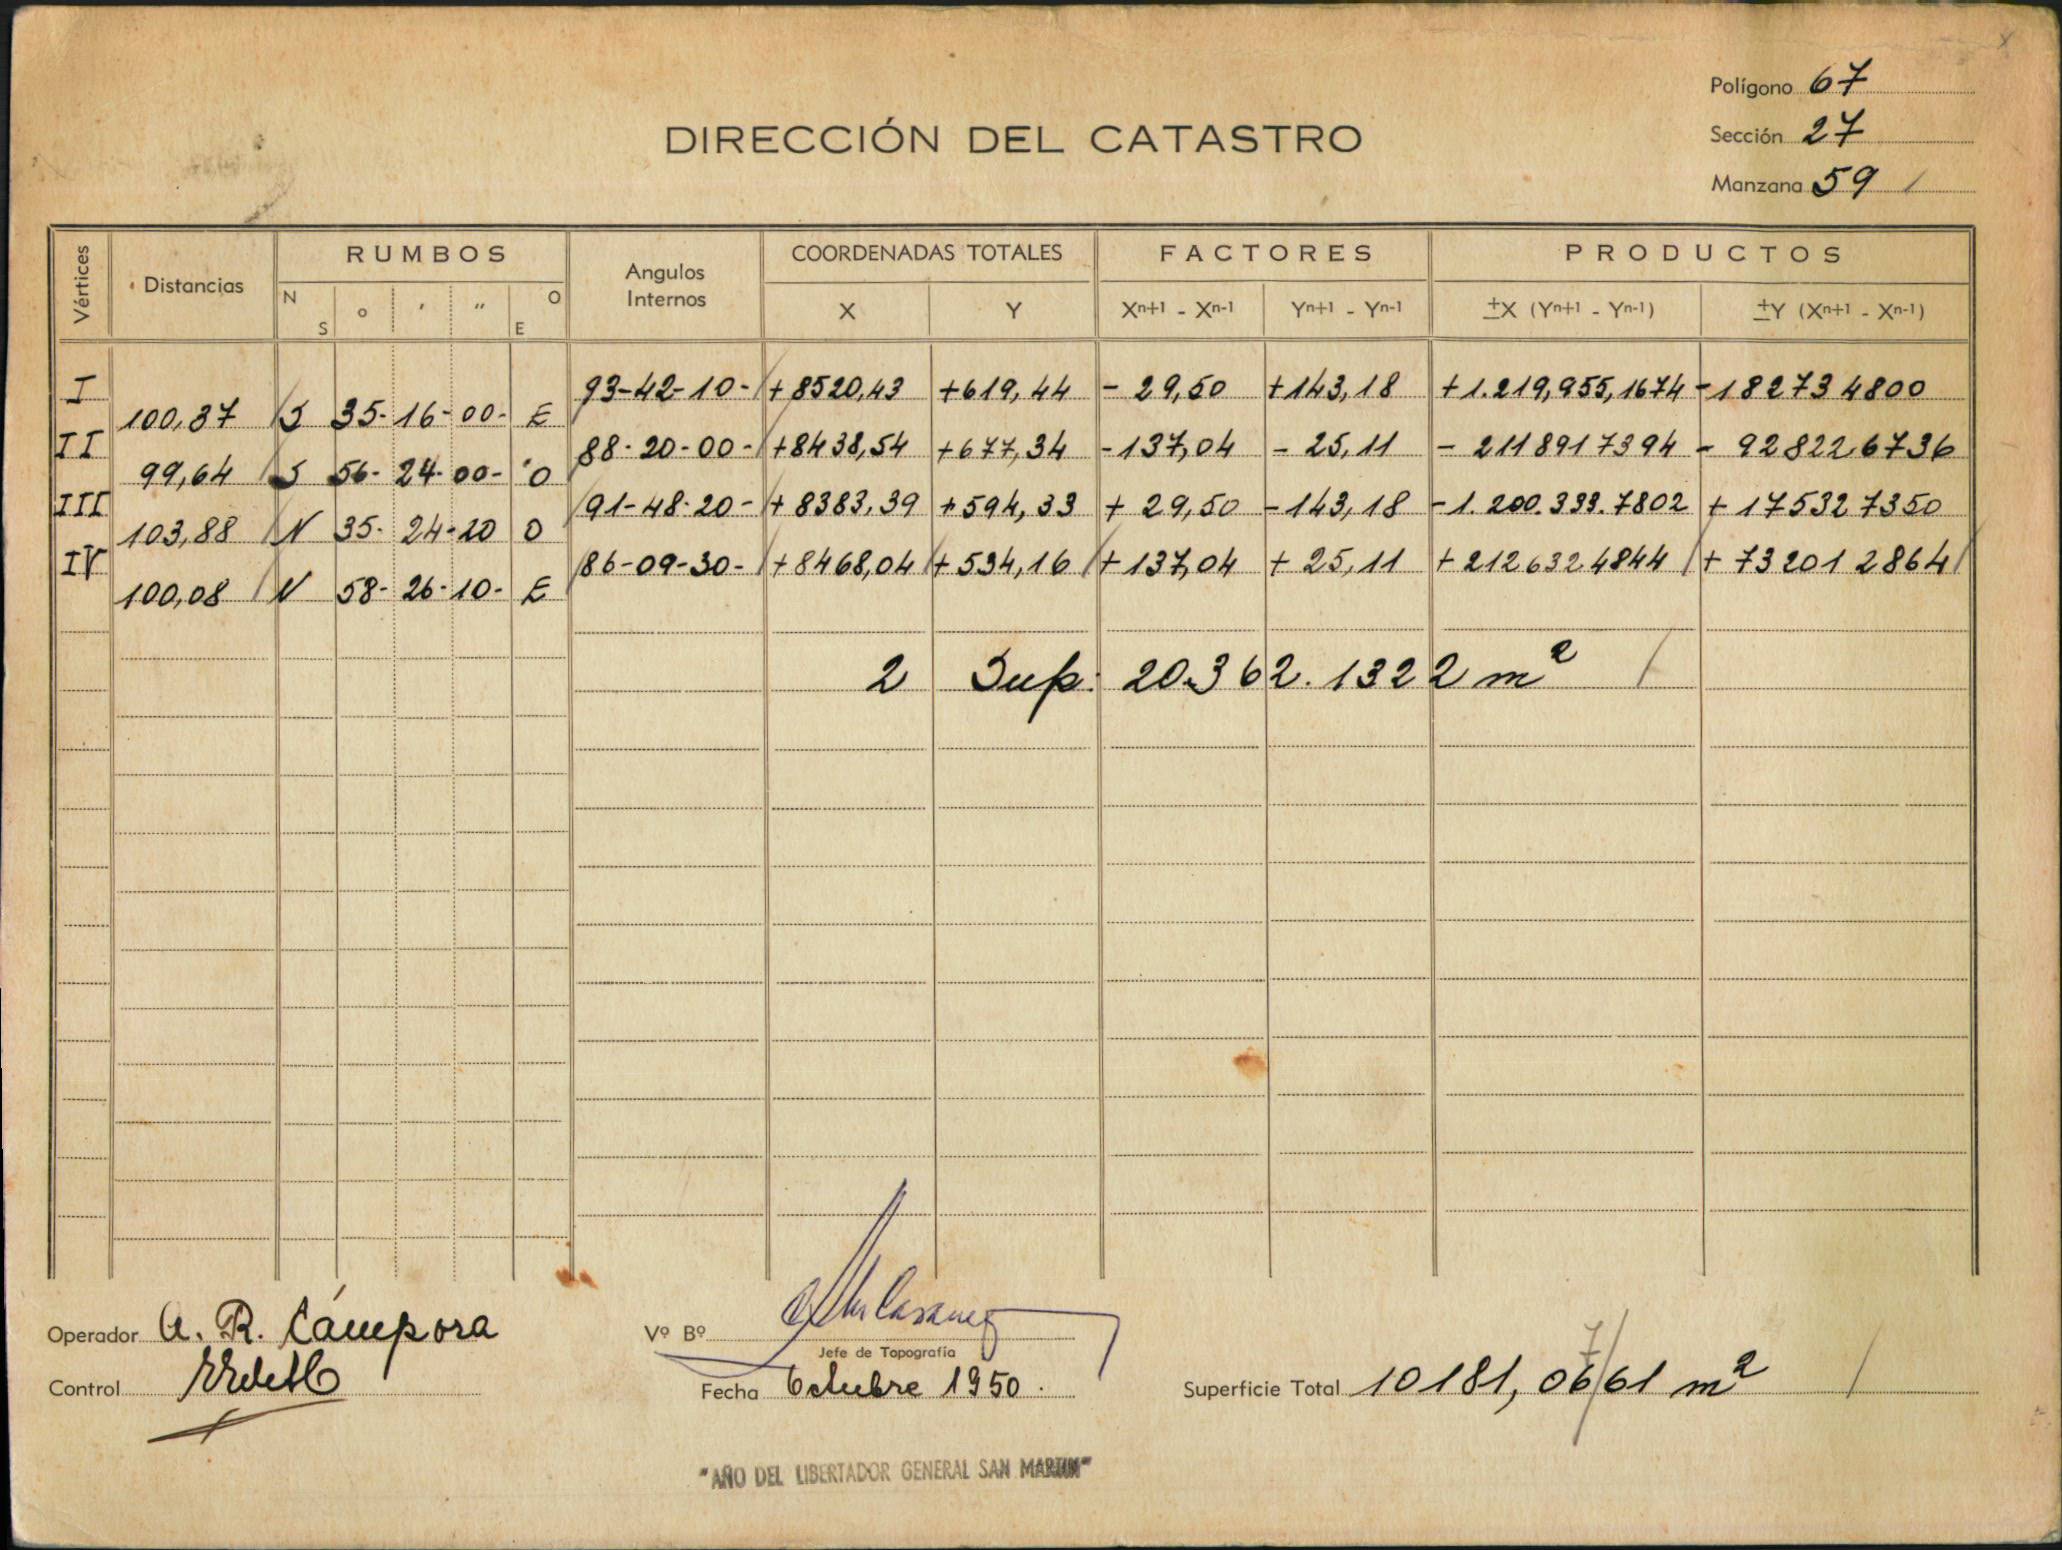 Polígono 67
DIRECCIÓN DEL CATASTRO
Sección 27
Manzana 59 /
Vértices Distancias RUMBOS Angulos Internos COORDENADAS TOTALES FACTORES PRODUCTOS
N S o ' " O E X Y Xn+1 - Xn-1 Yn+1 - Yn-1 ±X (Yn+1 - Yn-1) ±Y (Xn+1 - Xn-1)
I 93-42-10- +8520,43 +619,44 - 29,50 +143,18 +1.219,955,1674 -182734800
100,37 S 35-16-00- E
II 88-20-00- +8438,54 +677,34 -137,04 - 25,11 - 2118917394 - 928226736
99,64 S 56-24-00- O
III 91-48-20- +8383,39 +594,33 + 29,50 -143,18 -1.200.333.7802 + 175327350
103,88 N 35-24-20 O
IV 86-09-30- +8468,04 +534,16 +137,04 + 25,11 +2126324844 + 732012864
100,08 N 58-26-10- E
2 Sup. 20.362.1322 m² /
Operador A. R. Cámpora
Vº Bº
Jefe de Topografía
Control
Fecha Octubre 1950.
Superficie Total 10181,06/61 m² /
7
"AÑO DEL LIBERTADOR GENERAL SAN MARTIN"